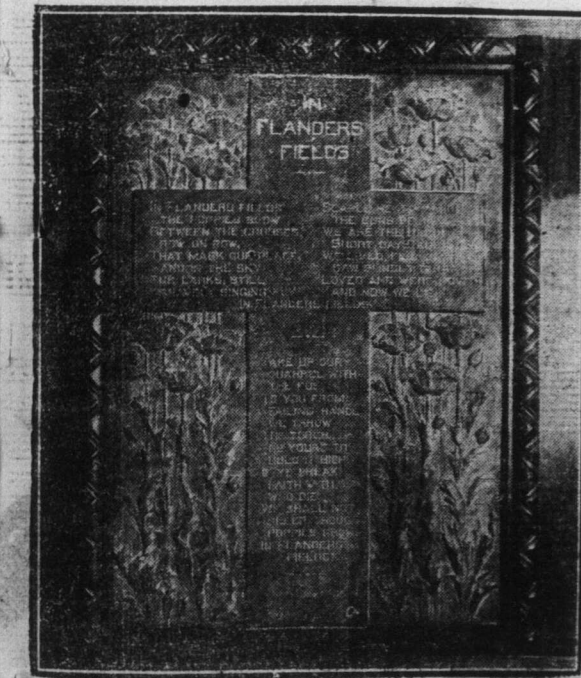 IN
FLANDERS
FIELDS
IN FLANDERS FIELDS
THE POPPIES BLOW
BETWEEN THE CROSSES,
ROW ON ROW,
THAT MARK OUR PLACE,
AND IN THE SKY
THE LARKS, STILL
BRAVELY SINGING, FLY
SCARCE
THE GUNS BE
WE ARE THE
SHORT DAYS
WE LIVED, FELT
SAW SUNSET
LOVED AND WERE
AND NOW WE LIE
IN FLANDERS FIELDS
TAKE UP OUR
QUARREL WITH
THE FOE
TO YOU FROM
FAILING HANDS
WE THROW
THE TORCH
BE YOURS TO
HOLD IT HIGH
IF YE BREAK
FAITH WITH US
WHO DIE
WE SHALL NOT
SLEEP, THOUGH
POPPIES GROW
IN FLANDERS
FIELDS